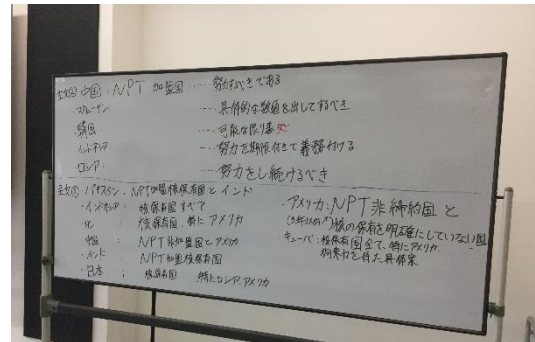 主文① 中国:NPT 加盟国 ・・・・ 努力すべきである
・スウェーデン ・・・・ 具体的な数値を出してするべき
・韓国: ・・・・ 可能な限り
・インドネシア ・・・・ 努力を期限付きで義務付ける
・ロシア: ・・・・ 努力をし続けるべき
主文②:パキスタン:NPT加盟核保有国とインド
・インドネシア: 核保有国すべて
・北 : 核保有国、特にアメリカ
・韓国 : NPT非加盟国とアメリカ
・インド : NPT加盟核保有国
・日本 : 核保有国 特にロシア、アメリカ
・アメリカ:NPT非締約国と
核の保有を明確にしていない国
・キューバ:核保有国全て、特にアメリカ、
拘束力を持った具体案